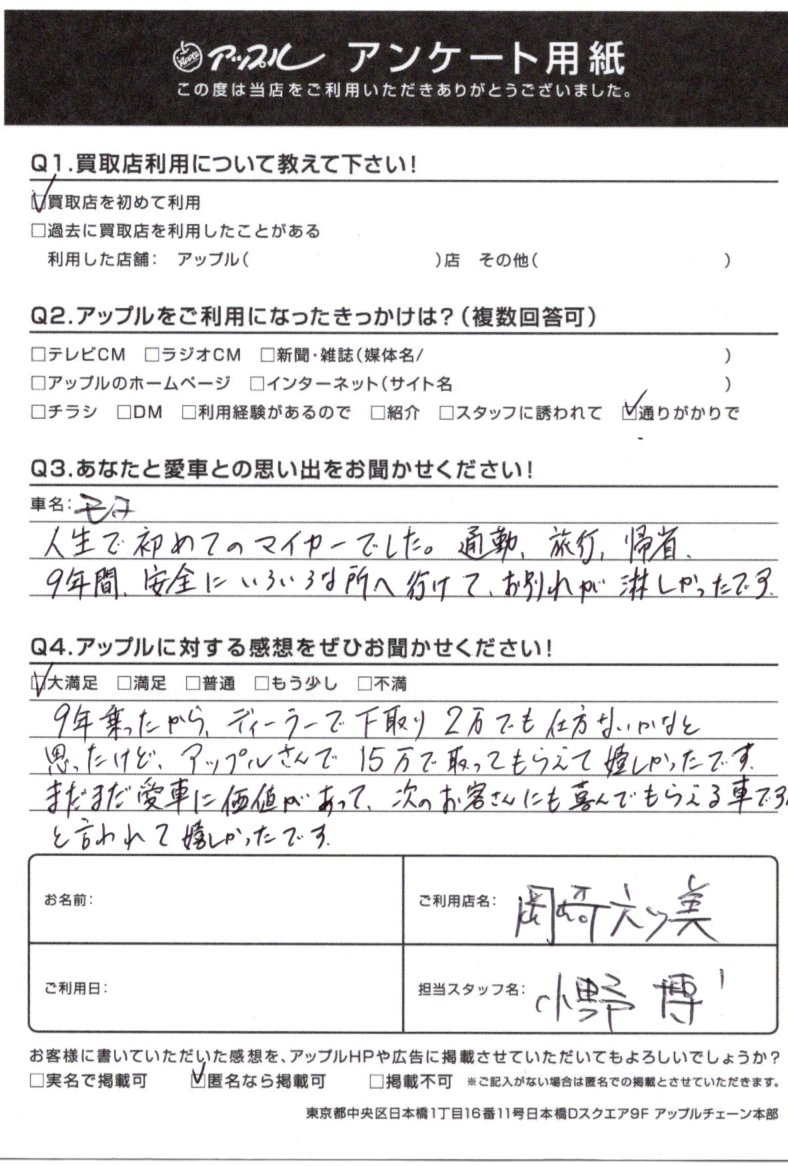 Apple アップル アンケート用紙
この度は当店をご利用いただきありがとうございました。
Q1.買取店利用について教えて下さい!
☑買取店を初めて利用
□過去に買取店を利用したことがある
利用した店舗: アップル( )店 その他( )
Q2.アップルをご利用になったきっかけは?(複数回答可)
□テレビCM □ラジオCM □新聞・雑誌(媒体名/ )
□アップルのホームページ □インターネット(サイト名 )
□チラシ □DM □利用経験があるので □紹介 □スタッフに誘われて ☑通りがかりで
Q3.あなたと愛車との思い出をお聞かせください!
車名:モコ
人生で初めてのマイカーでした。通勤、旅行、帰省、
9年間、安全にいろいろな所へ行けて、お別れが淋しかったです。
Q4.アップルに対する感想をぜひお聞かせください!
☑大満足 □満足 □普通 □もう少し □不満
9年乗ったから、ディーラーで下取り2万でも仕方ないかなと
思ったけど、アップルさんで15万で取ってもらえて嬉しかったです。
まだまだ愛車に価値があって、次のお客さんにも喜んでもらえる車です。
と言われて嬉しかったです。
お名前:
ご利用店名: 岡崎六ッ美
ご利用日:
担当スタッフ名: 小野 博
お客様に書いていただいた感想を、アップルHPや広告に掲載させていただいてもよろしいでしょうか?
□実名で掲載可 ☑匿名なら掲載可 □掲載不可 ※ご記入がない場合は匿名での掲載とさせていただきます。
東京都中央区日本橋1丁目16番11号日本橋Dスクエア9F アップルチェーン本部